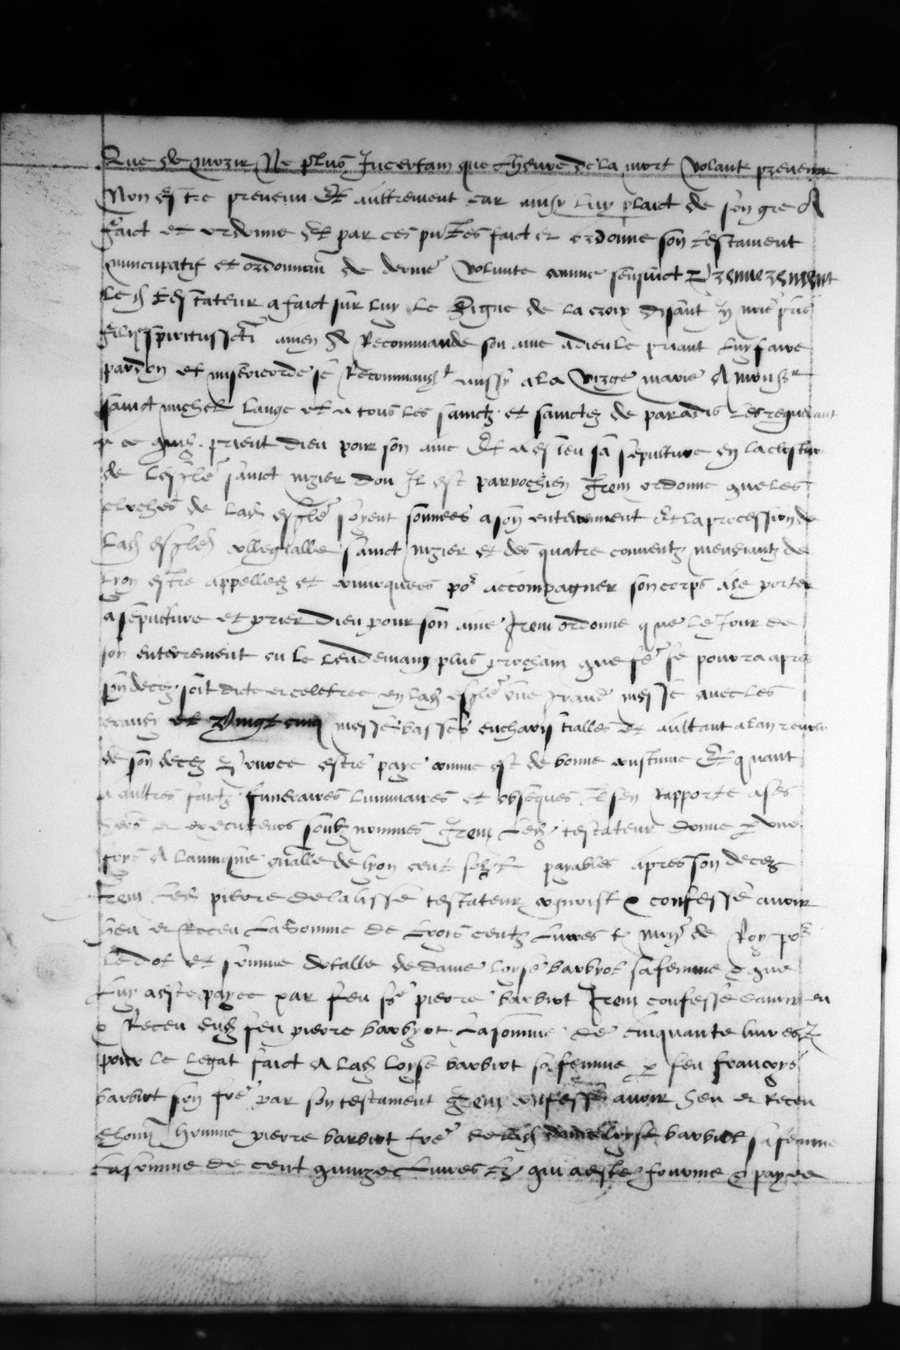 Que de morir Ne plus Incertain que lheure de la mort Volant prevenir
Non estre prevenu Et aultrement car ainsi luy plaict de son gre A
faict et ordonne Et par ces pntes faict et ordonne son testament
nuncupatif et ordonnan de derne Volunte comme sensuict Premierement
Led testateur a faict sur luy Le Signe de la croix disant In noie pris
filii spiritussti amen Et Recommande son ame a dieu le priant Luy faire
pardon et misericorde se Recommand aussy a la Vierge marie A monsr
sainct michel lange et a tous les sainctz et sainctes de paradis Les requerant
a ce quilz prient dieu pour son ame Et a esleu sa sepulture en
de Leglise sainct nizier dou Il est parrochien Item ordonne que les
cloches de lad esglise soyent sonnees a son enterrement Et la procession de
Lad esglise collegialle sainct nizier et des quatre couventz mendiantz de
Lyon estre appellees et convoquees por accompagner son corps a le porter
a sepulture et prier Dieu pour son ame Item ordonne que le Jour de
son enterrement ou le lendemain plus prochain que fe se pourra apres
son decez soit dicte et celebree en lad esglise une grand messe avec les
et Vingt cinq messes basses et aultant a lan revolu
de son decez estre paye comme est de bonne coustume Et quant
a aultres faictz funeraires luminaires et obseques Il sen rapporte a ses
hers et executeurs soubz nommes Item Led testateur donne
A laumosne gnalle de lyon cent solz tz payables apres son decez
Item Led pierre Delabisse testateur cognoist et confesse avoir
heu et Receu La Somme de trois centz Livres tz de Roy por
Le dot et somme dotalle de dame loyse barbyot sa femme que
Luy a este payee par feu sr pierre barbiot Item confesse avoir eu
et Receu dud feu pierre barbyot La somme de cinquante livres tz
pour le legat faict A lad loyse barbiot sa femme par feu francoys
barbiot son fre par son testament Item confesse avoir heu et Receu
honne homme pierre barbiot fre de lad dame loyse barbiot sa femme
La somme de cent quinze Livres tz qui a este fournie et payee